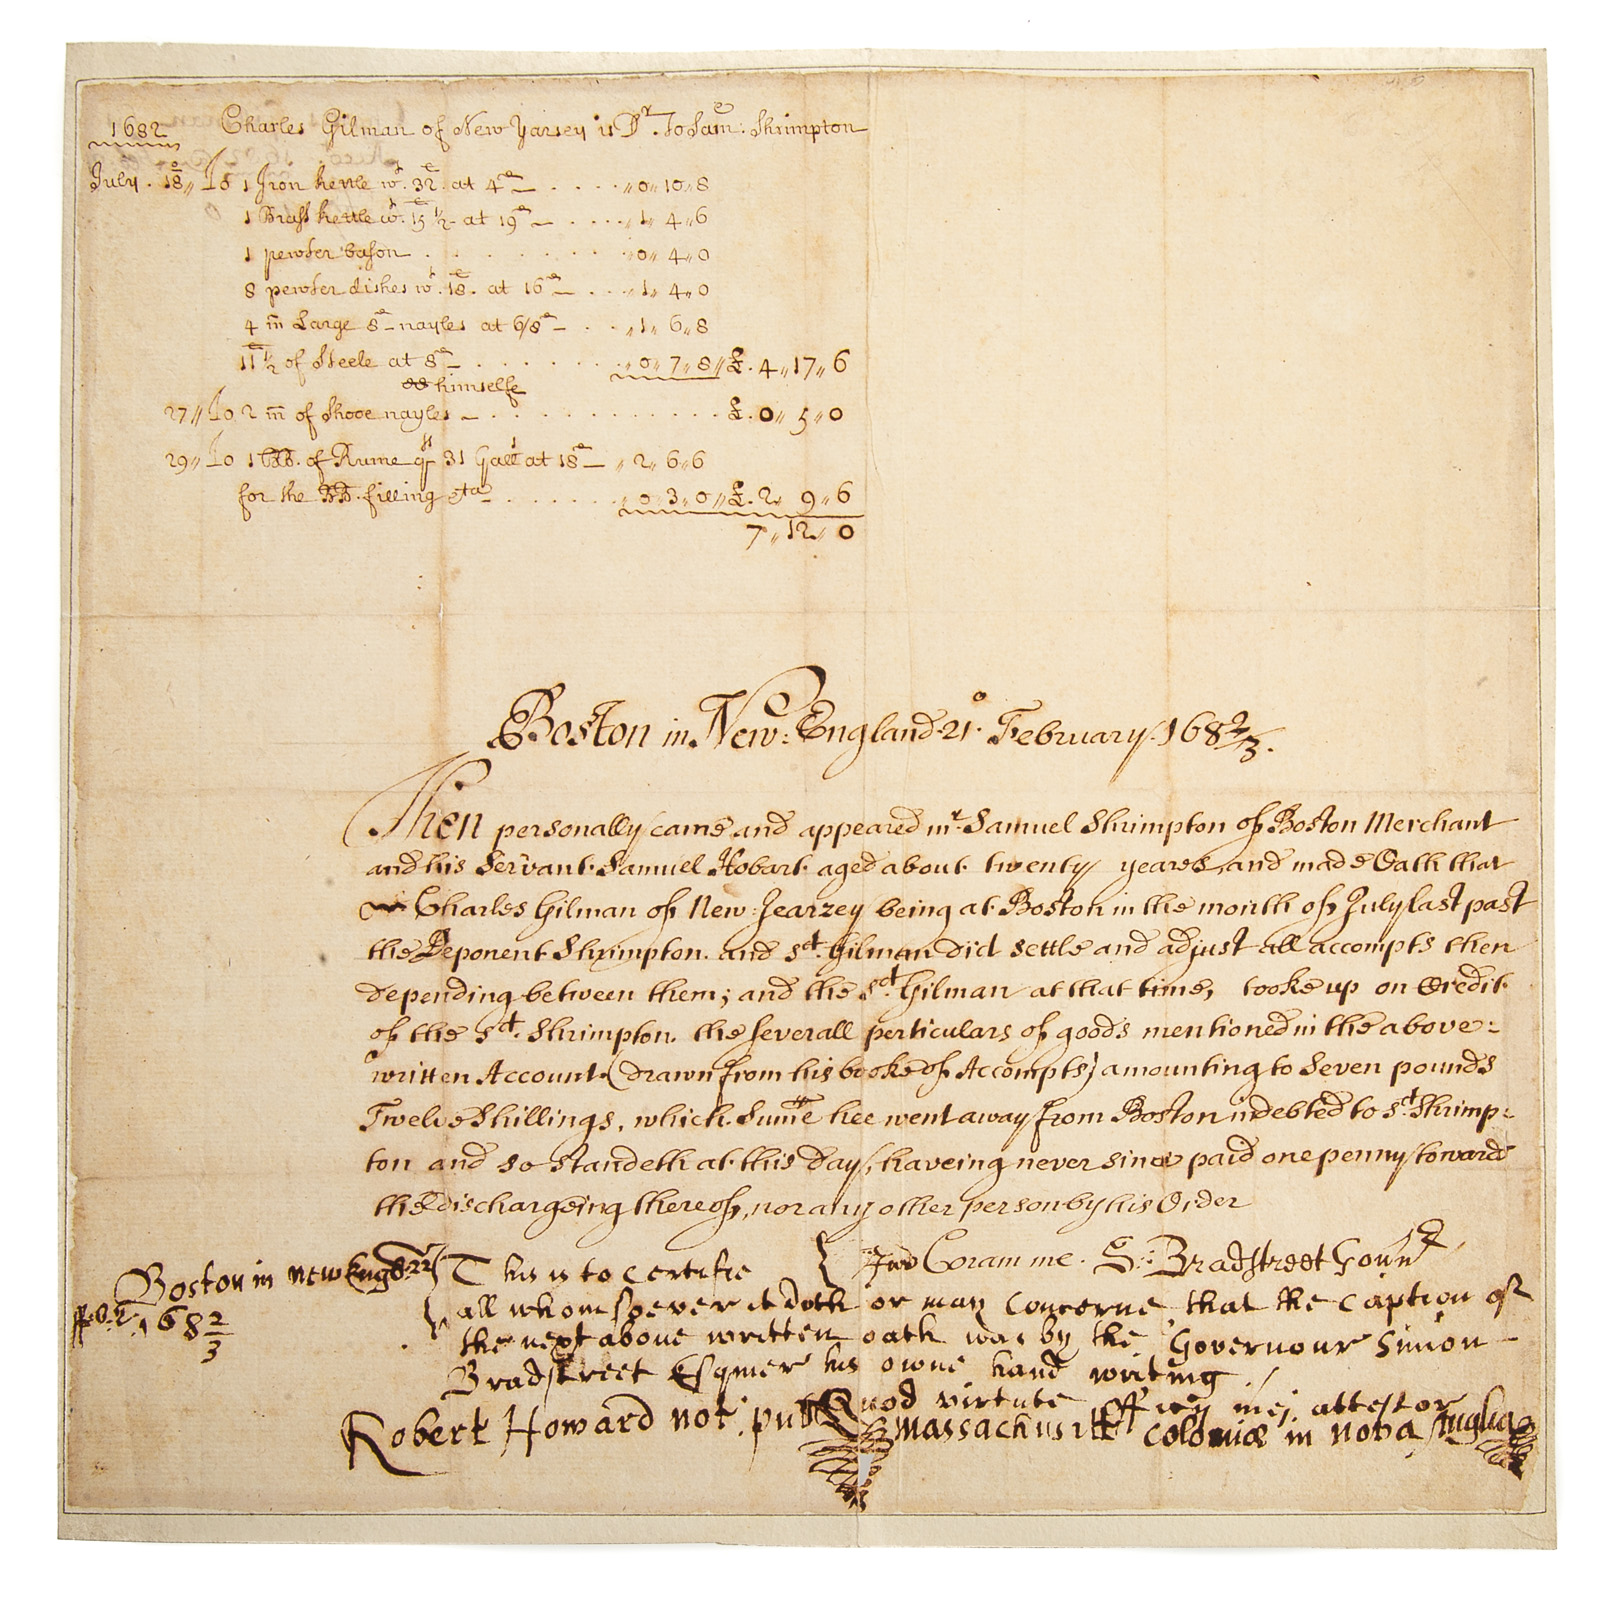 1682 Charles Gilman of New Yarsey is Dr. To Same: Shrimpton
July. 18o,, To 1 Iron kettle wt. 32l. at 4d — . . . . ,,0,,10,,8
1 Brass kettle wt. 15l ½ at 19d — . . . ,,1,,4,,6
1 pewter bason . . . . . . . ,,0,,4,,0
8 pewter dishes wt. 18l. at 16d — . . . ,,1,,4,,0
4 m̄ Large 8d — nayles at 6/8d — . . ,,1,,6,,8
11l ½ of Steele at 8d — . . . . . . . ,,0,,7,,8,, £. 4,,17,,6
himselfe
27,, To 2 m̄ of Shooe nayles — . . . . . . . . . . . £. 0,,5,,0
29,, To 1 bb. of Rume qt 31 Galls at 18d — ,,2,,6,,6
for the bb. filling &ta — . . . . . . ,,0,,3,,0,, £. 2,,9,,6
7,,12,,0
Boston in New: England. 21o. February. 168 2/3.
Then personally came and appeared mr. Samuel Shrimpton of Boston Merchant
and his Servant Samuel Hobart aged about twenty yeares, and made Oath that
Charles Gilman of New: Jearzey being at Boston in the month of July last past
the Deponent Shrimpton. and sd. Gilman did settle and adjust all accompts then
depending between them; and the sd. Gilman at that time, tooke up on Credit
of the sd. Shrimpton. the severall perticulars of goods mentioned in the above:
written Account (drawn from his booke of Accompts) amounting to Seven pounds
Twelve Shillings, which Summe hee went away from Boston indebted to sd. Shrimp:
ton and so standeth at this day, haveing never since paid one penny towards
the dischargeing thereof, nor any other person by his Order
Jurd Coram me. S: Bradstreet Govnr
Boston in new Engld 22 This is to certifie
ffeb.r. 168 2/3 all whom soever it doth or may Concerne that the Caption of
the next above written oath was by the Governour Simon
Bradstreet Esquier his owne hand writing.
Quod virtute officij mej attestor
Robert Howard not. publ massachusitt Coloniæ in nova Anglia